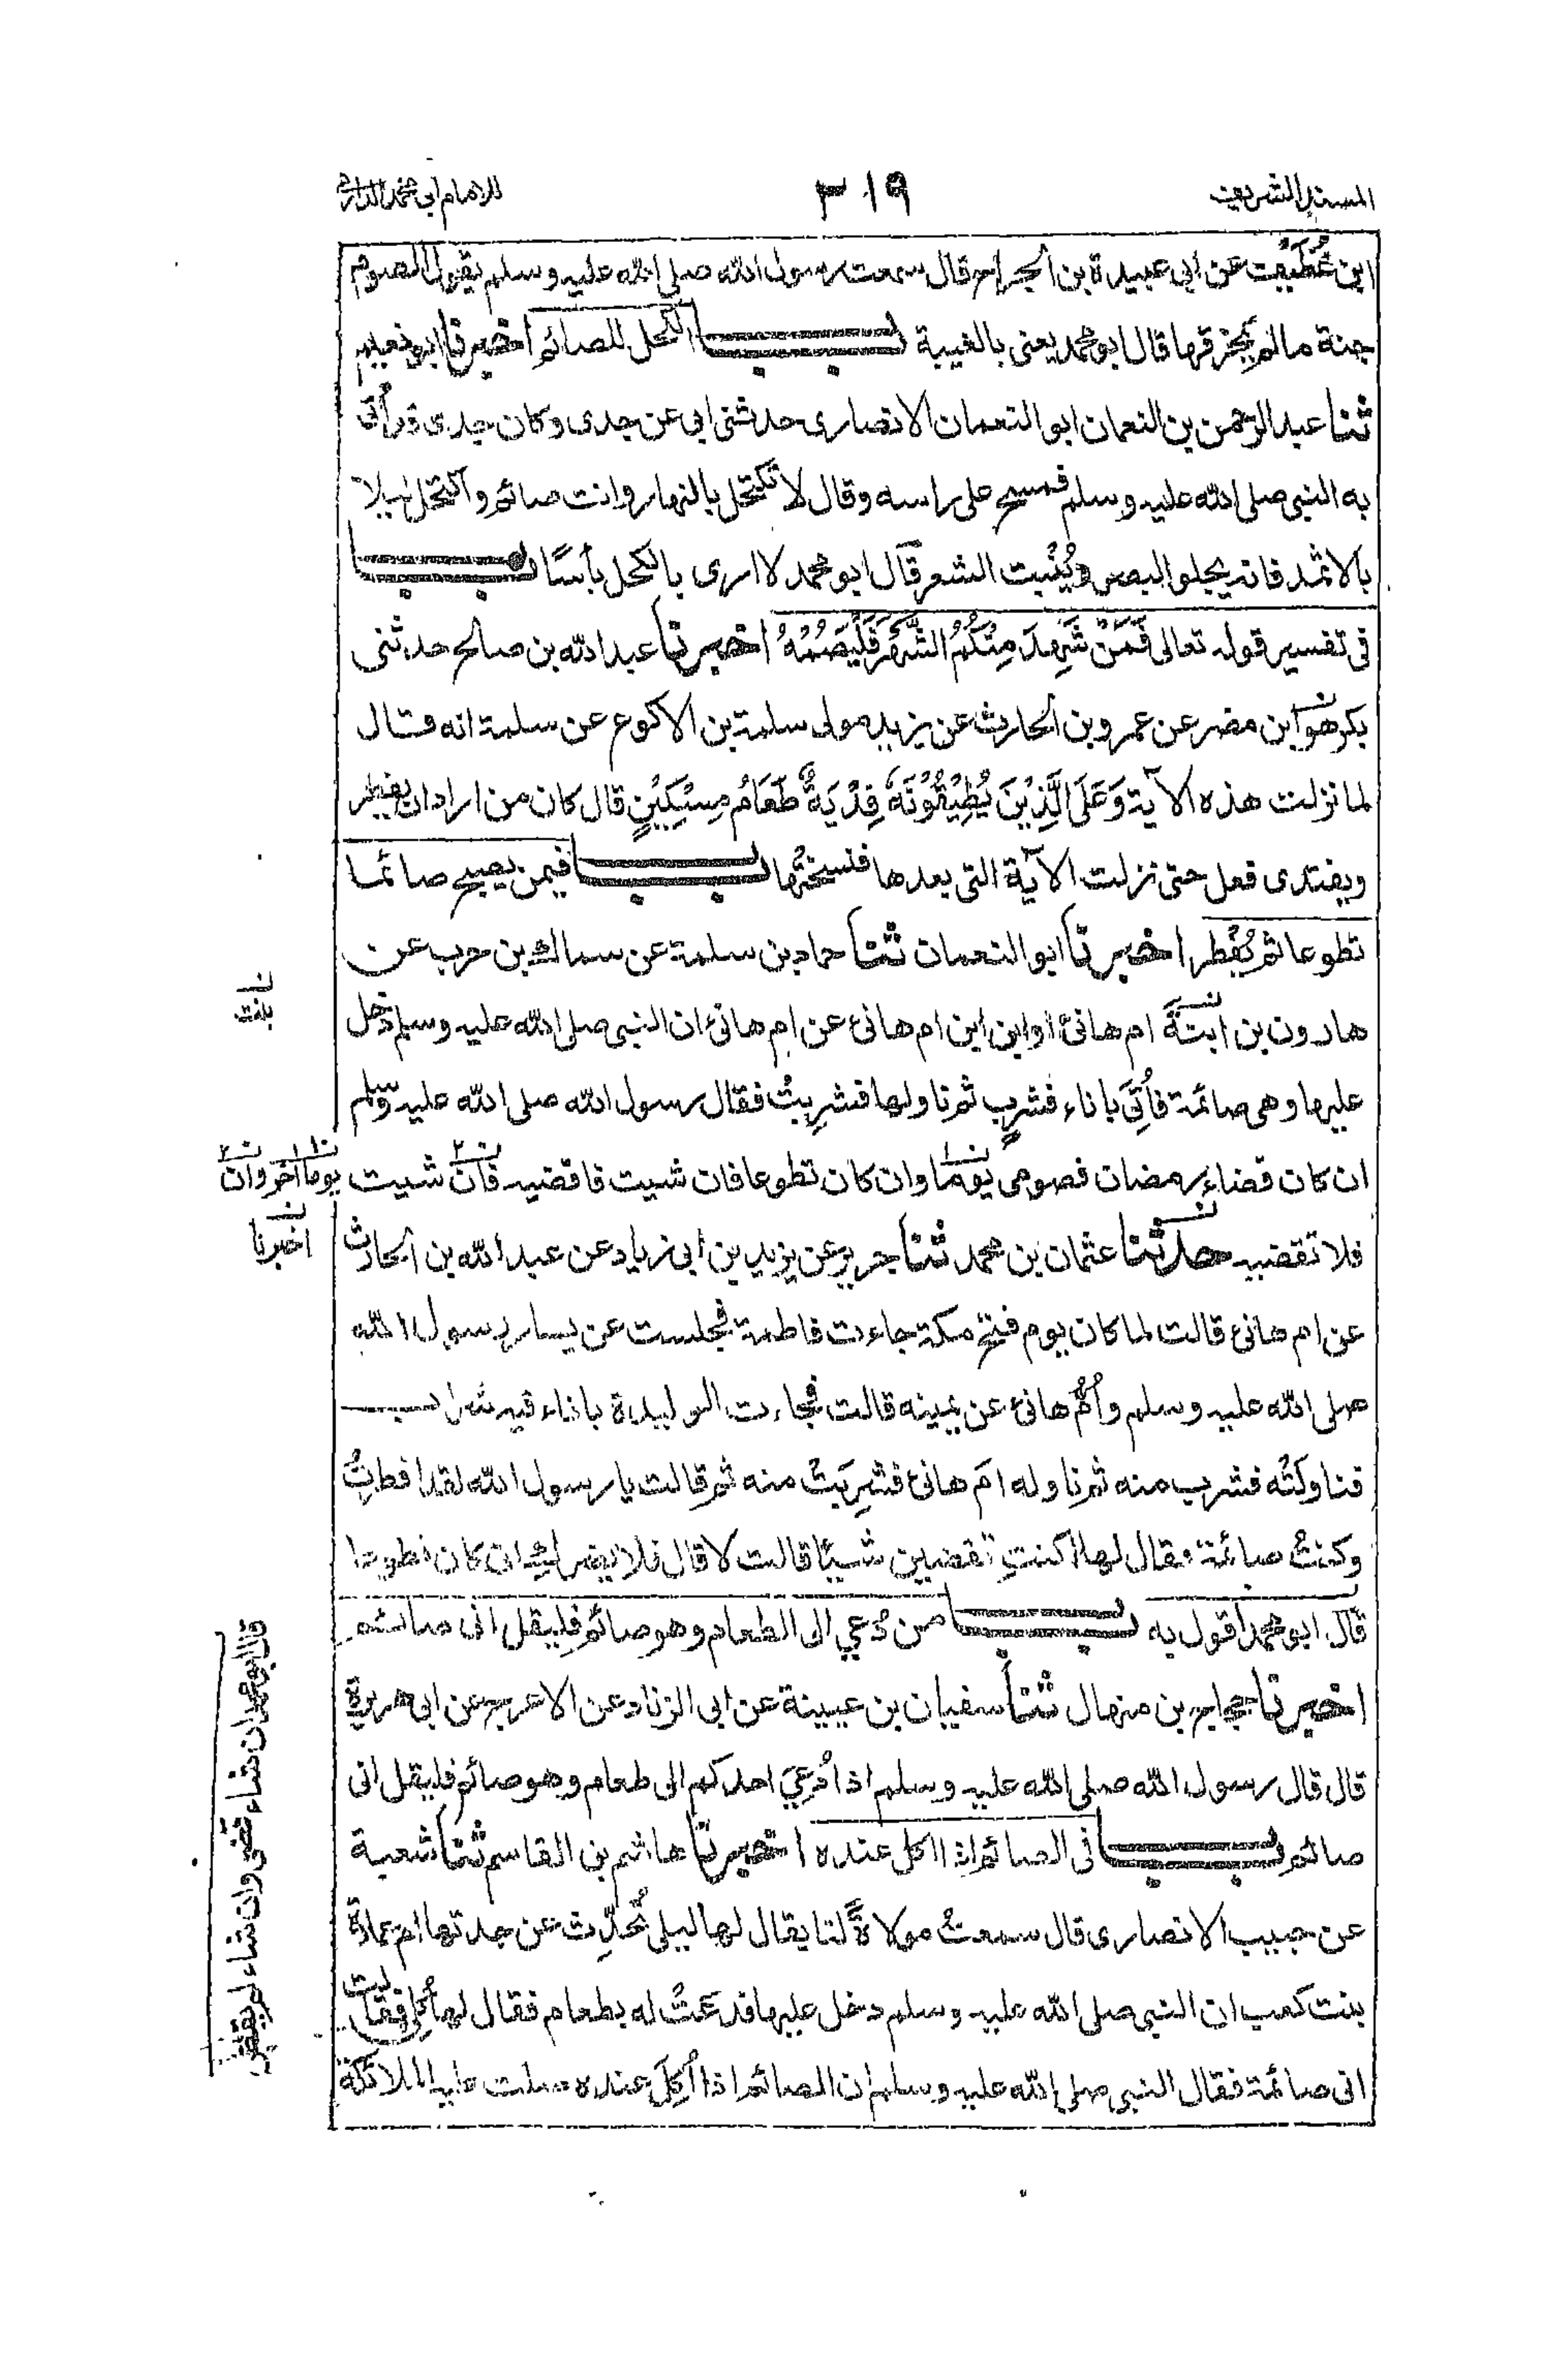 المسند الشريف
٣١٩
للامام ابى محمد الدارمى
ابن غُطَيْف عن ابى عبيدة بن الجراح قال سمعت رسول الله صلى الله عليه وسلم يقول الصوم
جنة مالم يخرقها قال ابو محمد يعنى بالغيبة بــاب الكحل للصائم اخبرنا ابو نعيم
ثنا عبد الرحمن بن النعمان ابو النعمان الانصارى حدثنى ابى عن جدى وكان جدى قد أُتى
به النبى صلى الله عليه وسلم فمسح على راسه وقال لا تكتحل بالنهار وانت صائم واكتحل ليلا
بالاثمد فانه يجلو البصر ويُنْبِت الشعر قال ابو محمد لا ارى بالكحل بأسًا بــاب
فى تفسير قوله تعالى فَمَنْ شَهِدَ مِنْكُمُ الشَّهْرَ فَلْيَصُمْهُ اخبرنا عبد الله بن صالح حدثنى
بكر هو ابن مضر عن عمرو بن الحارث عن يزيد مولى سلمة بن الاكوع عن سلمة انه قال
لما نزلت هذه الآية وَعَلَى الَّذِيْنَ يُطِيْقُوْنَهٗ فِدْيَةٌ طَعَامُ مِسْكِيْنٍ قال كان من اراد ان يفطر
ويفتدى فعل حتى نزلت الآية التى بعدها فنسختها بــاب فيمن يصبح صائما
تطوعا ثم يُفْطر اخبرنا ابو النعمان ثنا حماد بن سلمة عن سماك بن حرب عن
هارون بن ابنة ام هانئ او ابن ابن ام هانئ عن ام هانئ ان النبى صلى الله عليه وسلم دخل
ن بنت
عليها وهى صائمة فأُتِىَ باناء فشرب ثم ناولها فشربتْ فقال رسول الله صلى الله عليه وسلم
ان كان قضاء رمضان فصومى يوما وان كان تطوعا فان شيت فاقضيه فان شيت
يوما اخر وان
فلا تقضيه حدثنا عثمان بن محمد ثنا جرير عن يزيد بن ابى زياد عن عبد الله بن الحارث
ن اخبرنا
عن ام هانئ قالت لما كان يوم فتح مكة جاءت فاطمة فجلست عن يسار رسول الله
صلى الله عليه وسلم وأُمُّ هانئ عن يمينه قالت فجاءت الوليدة باناء فيه شراب
فناولتُه فشرب منه ثم ناوله امَ هانئ فشَرِبَتْ منه ثم قالت يا رسول الله لقد افطرتُ
وكنتُ صائمة فقال لها اكنتِ تقضين شيئا قالت لا قال فلا يضرك ان كان تطوعا
قال ابو محمد اقول به بــاب من دُعي الى الطعام وهو صائم فليقل انى صائم
قال ابو محمد ان شاء قضى وان شاء لم يقض
اخبرنا حجاج بن منهال ثنا سفيان بن عيينة عن ابى الزناد عن الاعرج عن ابى هريرة
قال قال رسول الله صلى الله عليه وسلم اذا دُعِيَ احدكم الى طعام وهو صائم فليقل انى
صائم بــاب فى الصائم اذا اكل عنده اخبرنا هاشم بن القاسم ثنا شعبة
عن حبيب الانصارى قال سمعتُ مولاةً لنا يقال لها ليلى تُحَدِّث عن جدتها ام عمارة
بنت كعب ان النبى صلى الله عليه وسلم دخل عليها فدعتْ له بطعام فقال لها كُلى فقالت
انى صائمة فقال النبى صلى الله عليه وسلم ان الصائم اذا أُكِلَ عنده صلت عليه الملائكة